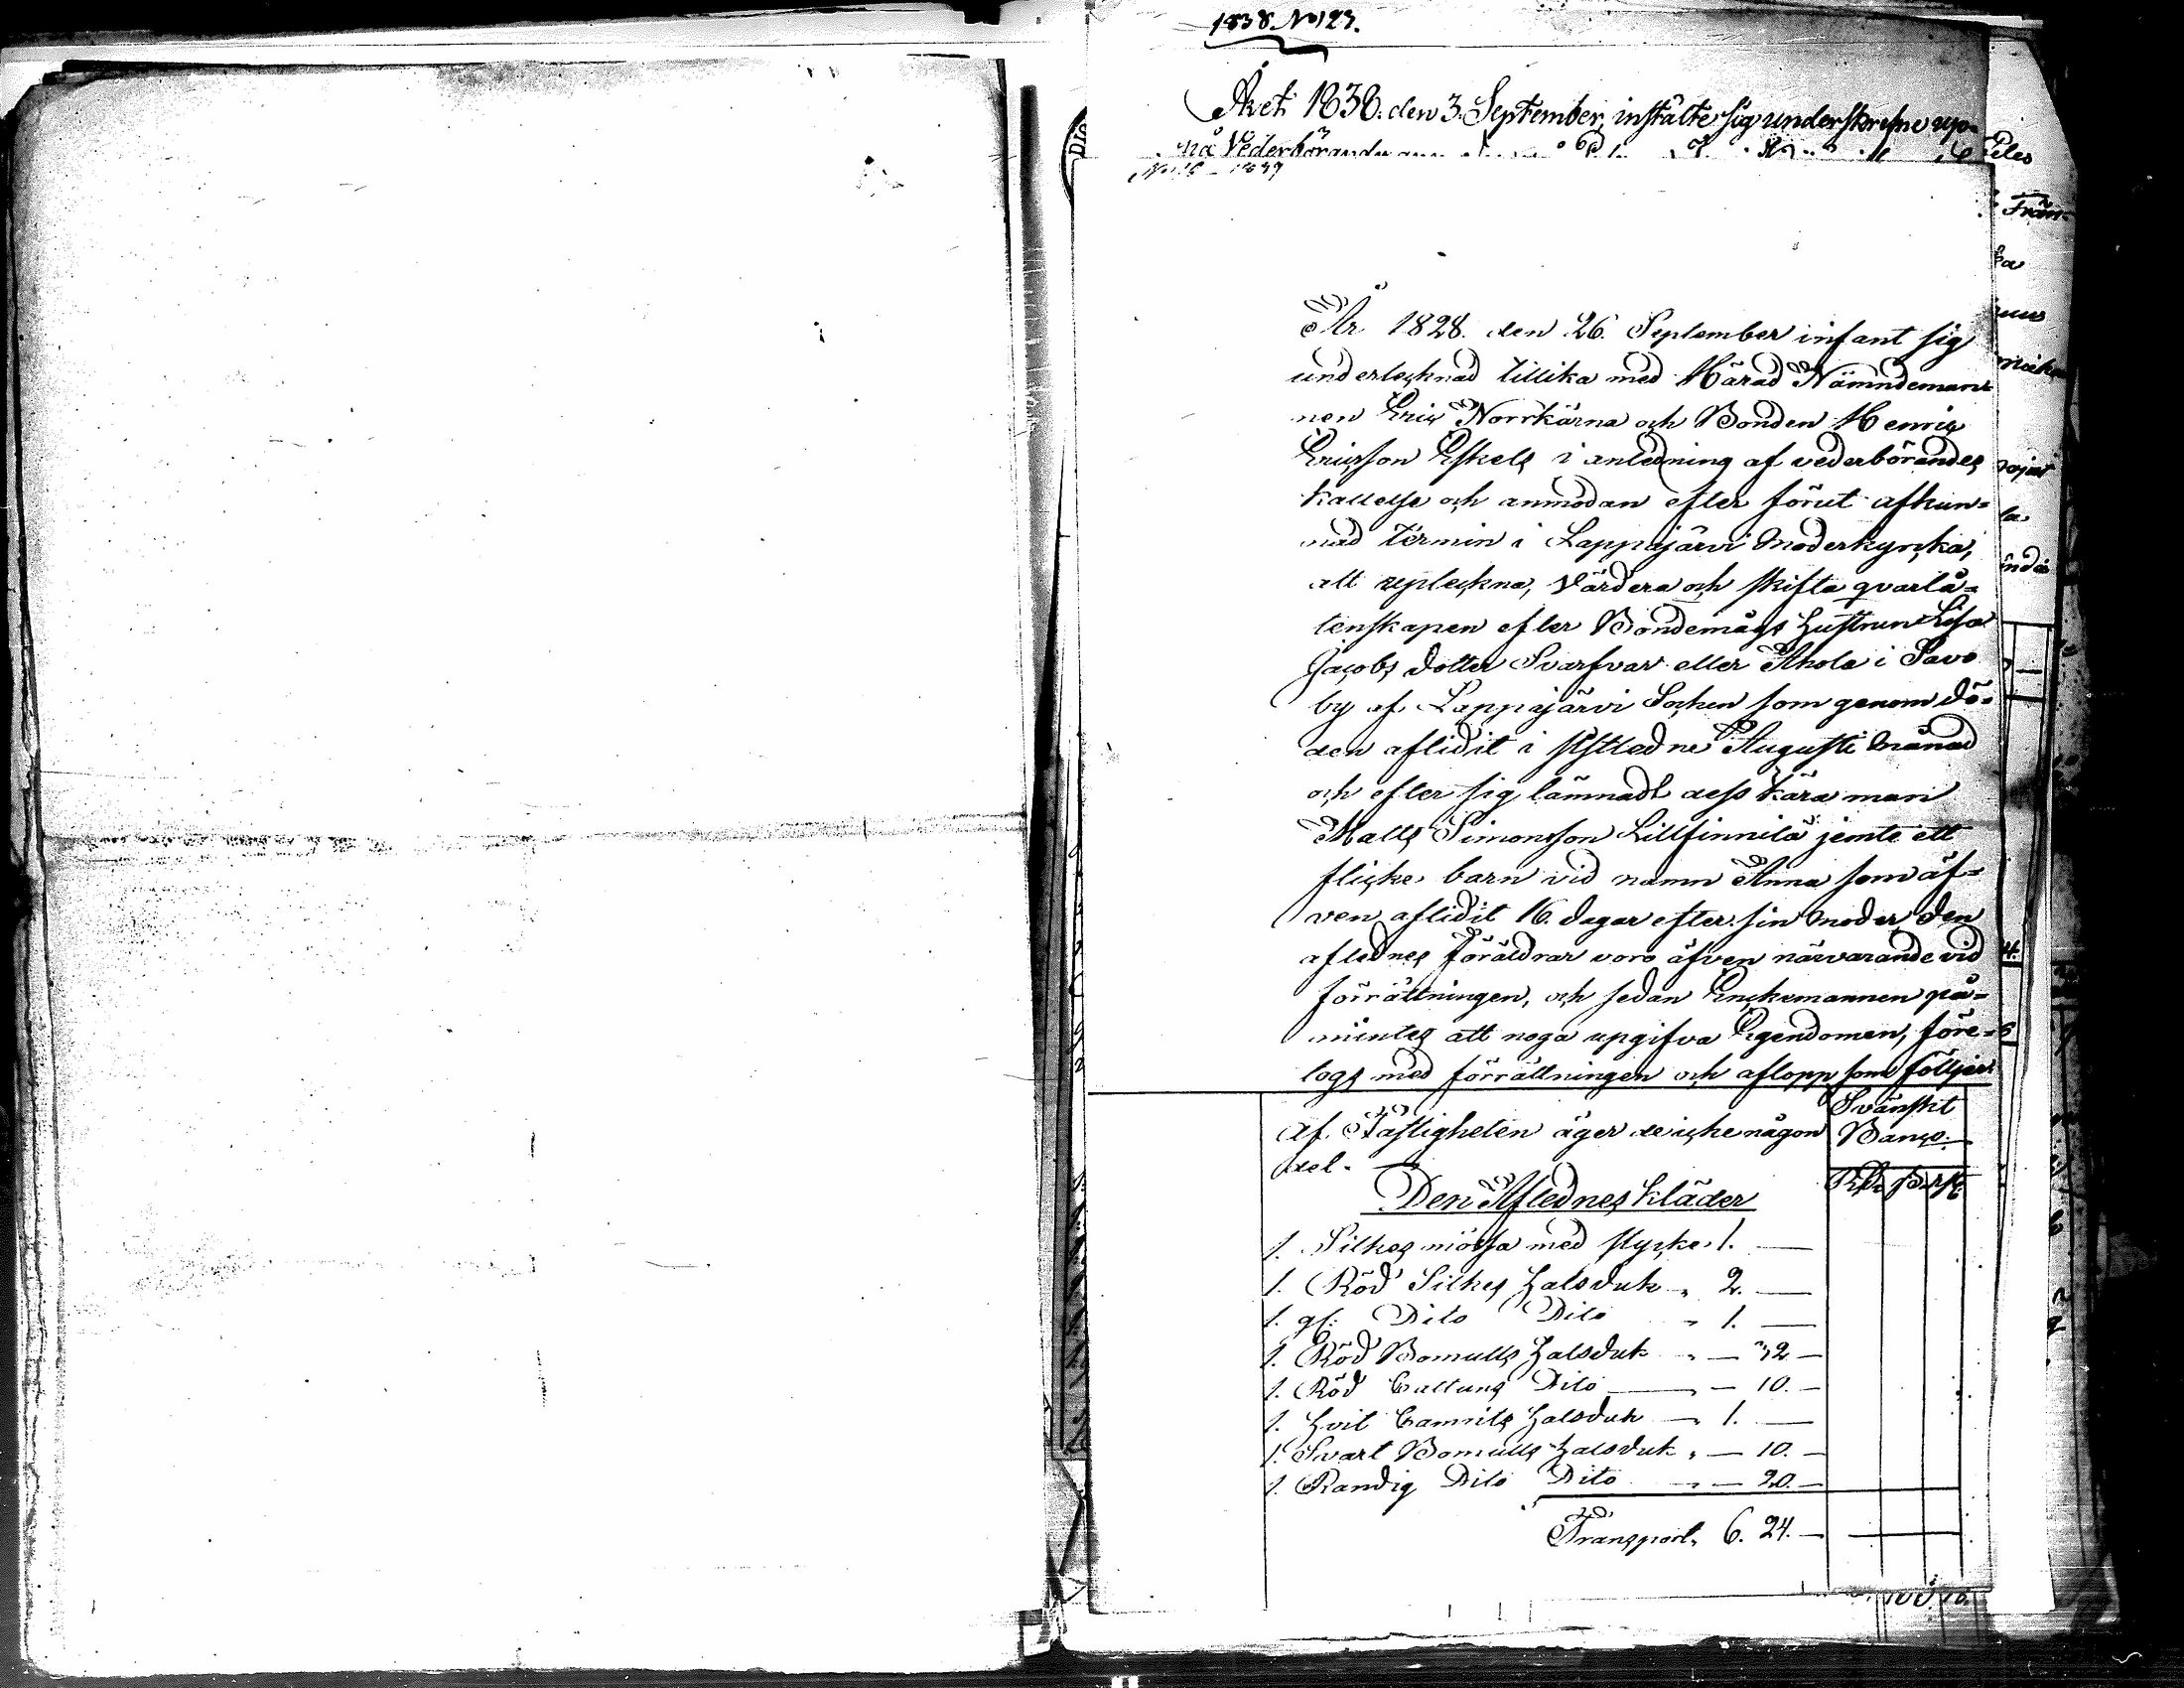 1838. No 123.
Året 1838. den 3. September, instälte sig underskrefne upo-
på Vederbörandes
1839
År 1828. den 26. September infant sig
undertecknad tillika med Härads Nämndeman-
nen Eric Norrkärna och Bonden Henric
Ericsson Eskels i anledning af vederbörandes
kallelse och anmodan efter förut afkun-
nad termin i Lappajärvi Moderkyrcka,
att upteckna, Värdera och skifta qvarlå-
tenskapen efter Bondemågs Hustrun Lisa
Jacobs dotter Svarfvar eller Ahola i Savo
by af Lappajärvi Socken som genom dö-
den aflidit i sistledne Augusti Månad
och efter sig lämnadt dess kära man
Matts Simonsson Lillfinnilä jemte ett
flicke barn vid namn Anna som äf-
ven aflidit 16. dagar efter sin moder, den
aflednes föräldrar voro äfven närvarande vid
förrättningen, och sedan Enckemannen på-
mintes att noga upgifva Egendomen, före-
togs med förrättningen och aflopp som följer
Af Fastigheten äger de icke någon
del.
Svänskt
Banco.
Den Aflednes kläder
1. Silkes mössa med stycke 1. —
1. Röd Silkes Halsduk " 2. —
1. gl: Dito Dito " 1. —
1. Röd Bomulls Halsduk " — 32 —
1. Röd Cattuns Dito — " — 10. —
1. Hvit Camrits Halsduk — " 1. —
1. Svart Bomulls Halsduk " — 10. —
1. Randig Dito Dito " — 20. —
Transport, 6. 24. —